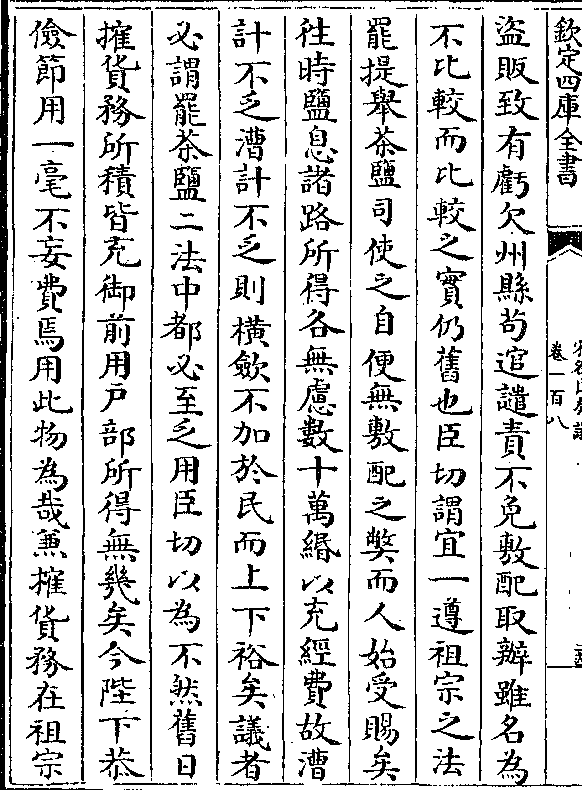 欽定四庫全書
卷一百八
盜販致有虧欠州縣苟逭譴責不免敷配取辦雖名為
不比較而比較之實仍舊也臣切謂宜一遵祖宗之法
罷提舉茶鹽司使之自便無敷配之獘而人始受賜矣
徃時鹽息諸路所得各無慮數十萬緡以充經費故漕
計不乏漕計不乏則橫歛不加於民而上下裕矣議者
必謂罷茶鹽二法中都必至乏用臣切以為不然舊日
搉貨務所積皆充御前用戶部所得無幾矣今陛下恭
儉節用一毫不妄費焉用此物為哉兼搉貨務在祖宗